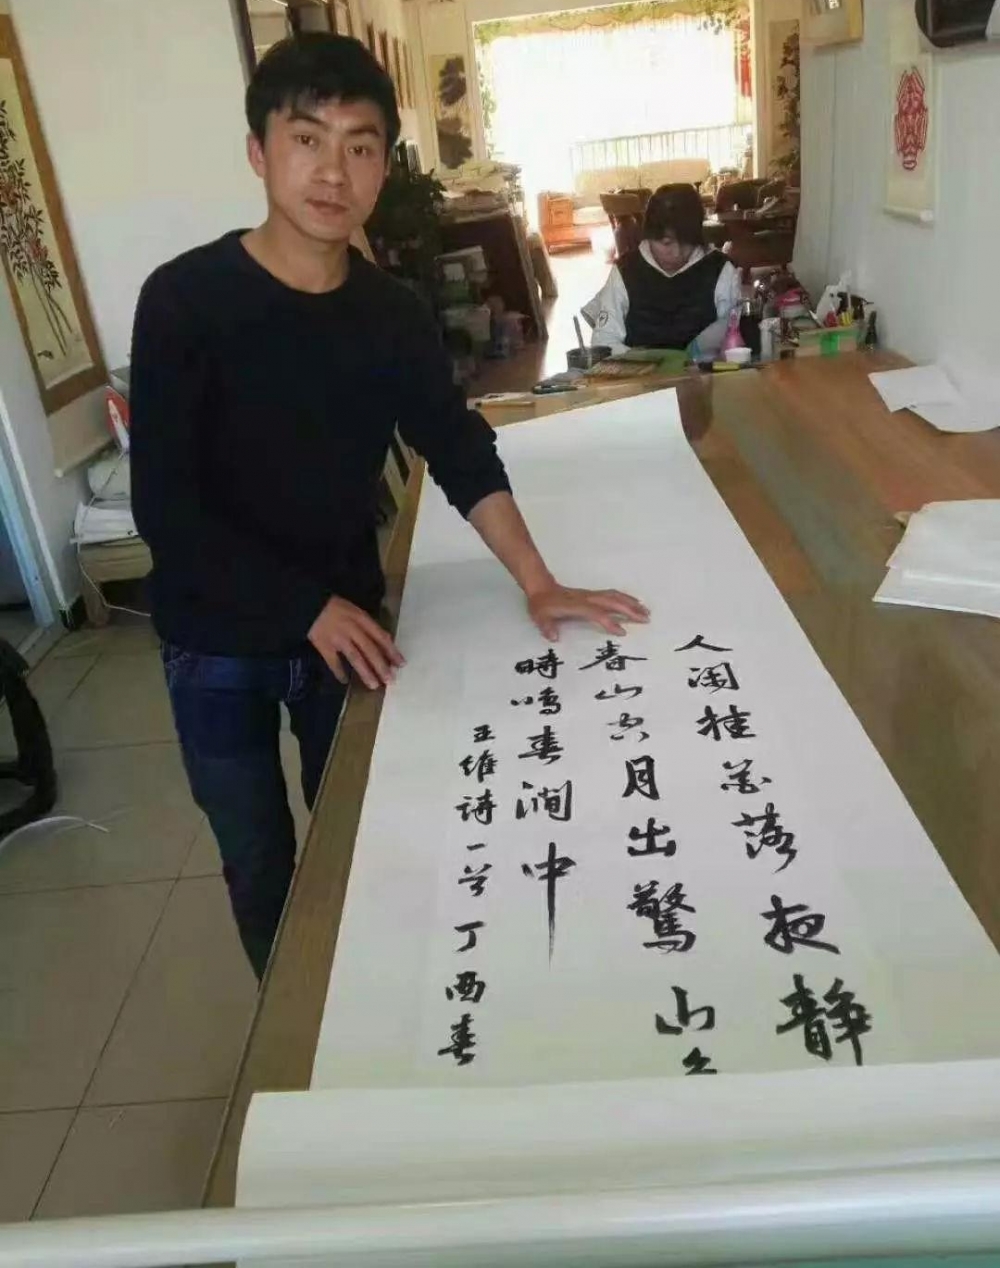 人闲桂花落夜静
春山空月出驚山
時鸣春澗中
王維诗一首丁酉春